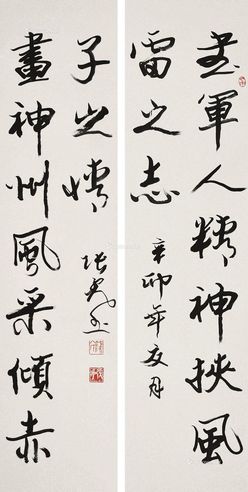 書軍人精神挾風
雷之志
辛卯年夏月
畫神州風采傾赤
子之情
張